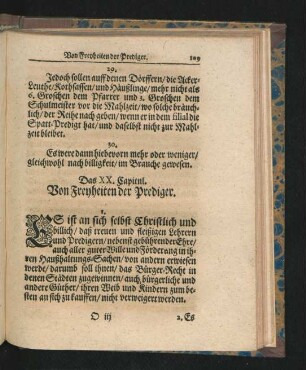 Von Freyheiten der Prediger. 109
29.
Jedoch sollen auff denen Dörffern / die Acker-
Leuthe / Kothsassen / und Häußlinge / mehr nicht als
6. Groschen dem Pfarrer und 3. Groschen dem
Schulmeister vor die Mahlzeit / wo solche bräuch-
lich / der Reihe nach geben / wenn er in dem filial die
Spatt-Predigt hat / und daselbst nicht zur Mahl-
zeit bleibet.
30.
Es were dann hiebevorn mehr oder weniger /
gleichwohl nach billigkeit / im Brauche gewesen.
Das XX. Capitul.
Von Freyheiten der Prediger.
1.
ES ist an sich selbst Christlich und
billich / daß treuen und fleißigen Lehrern
und Predigern / nebenst gebührender Ehre /
auch aller guter Wille und Förderung in ih-
ren Haußhaltungs-Sachen / von andern erwiesen
werde / darumb soll ihnen / das Bürger-Recht in
denen Städten zugewinnen / auch bürgerliche und
andere Güther / ihren Weib und Kindern zum be-
sten an sich zu kauffen / nicht verweigert werden.
O iij 2. Es